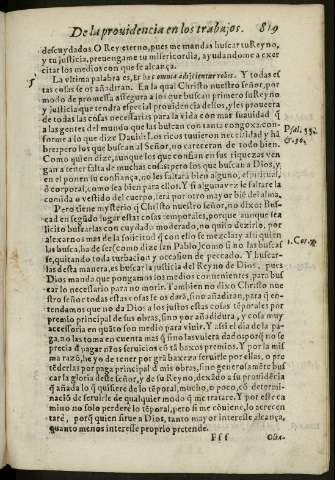 De la prouidencia en los trabajos. 819
descuydados. O Rey eterno, pues me mandas buscar tu Reyno,
y tu justicia, preuengame tu misericordia, ayudandome a exer
citar los medios con que se alcança.
5 La vltima palabra es, Et hæc omnia adijcientur vobis. Y todas es
tas cosas se os añadiran. En la qual Christo nuestro señor, por
modo de promessa assegura a los que buscan primero su Reyno
y justicia que tendra especial prouidencia dellos, y les proueera
de todas las cosas necessarias para la vida con mas suauidad q̃
a las gentes del mundo que las buscan con tanta congoxa. con-
forme a lo que dize Dauid: Los ricos tuuieron necessidad y hã
bre, pero los que buscan al Señor, no careceran de todo bien.
Psal. 33.
Como quien dize, aunque los que confian en sus riquezas ven
gan a tener falta de muchas cosas, pero los que buscan a Dios, y
en el ponen su confiança, no les faltarà bien alguno, espiritual,
ò corporal, como sea bien para ellos. Y si alguna vez le faltare la
comida o vestido del cuerpo, serà por otro mayor biẽ del alma.
Pero tiene mysterio q̃ Christo nuestro señor, no dixo: Bus-
cad en segũdo lugar estas cosas temporales, porque aunque sea
licito buscarlas con cuydado moderado, no quiso dezirlo, por
alexarnos mas de la solicitud q̃ con ello se mezcla: y assi quien
las busca, ha de ser (como dize san Pablo) como si no las buscas
se, quitando toda turbacion y occasion de peccado. Y buscar-
1. Cor. 7.
las desta manera, es buscar la justicia del Reyno de Dios, pues
Dios manda que pongamos los medios conuenientes, para bus
car lo necessario para no morir. Tambien no dixo Christo nue
stro señor todas estas cosas se os darã, sino añadiran, para q̃ en-
tendamos que no da Dios a los justos estas cosas tẽporales por
premio principal de sus obras, sino por añadidura, y cosa muy
accessoria en quãto son medio para viuir. Y assi el dia de la pa-
ga, no las toma en cuenta mas q̃ si no las vuiera dado: porq̃ no se
precia d̃ pagar nr̃os seruicios cõ tã baxos premios. Y por la mis
ma razõ, he yo de tener por grã baxeza seruirle por ellas, o pre
tẽderlas por paga principal d̃ mis obras, sino generosamẽte bus
car la gloria deste señor, y de su Reyno, dexãdo a su prouidẽcia
q̃ añada lo q̃ quisiere de lo tẽporal, mucho, o poco, cõ determi-
nació de seruirle de qualquier modo q̃ me tratare. Y por este ca
mino no solo perderè lo tẽporal, pero si me cõuiene, lo acrecen
tarè, porq̃ quien sirue a Dios, tanto mayor interesse alcança,
quanto menos interesse proprio pretende.
Fff